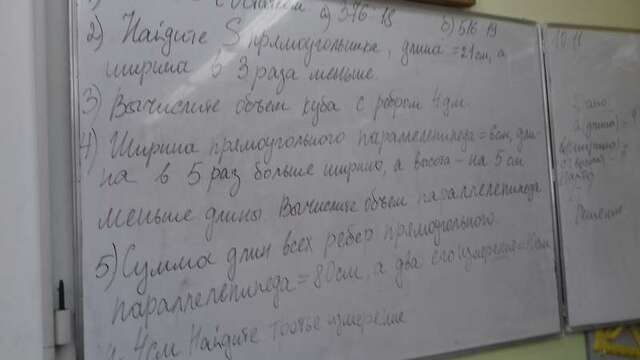 1) с остатком а) 376:18 б) 516:19
2) Найдите S прямоугольника, длина = 21см, а
ширина в 3 раза меньше.
3) Вычислите объем куба с ребром 4 дм.
4) Ширина прямоугольного параллелепипеда = 6см, дли-
на в 5 раз больше ширины, а высота – на 5 см
меньше длины Вычислите объем параллелепипеда
5) Сумма длин всех ребер прямоугольного
параллелепипеда = 80см, а два его измерение =
4см Найдите третье измерение
Дано:
(длина) =
(ширина)
Решение